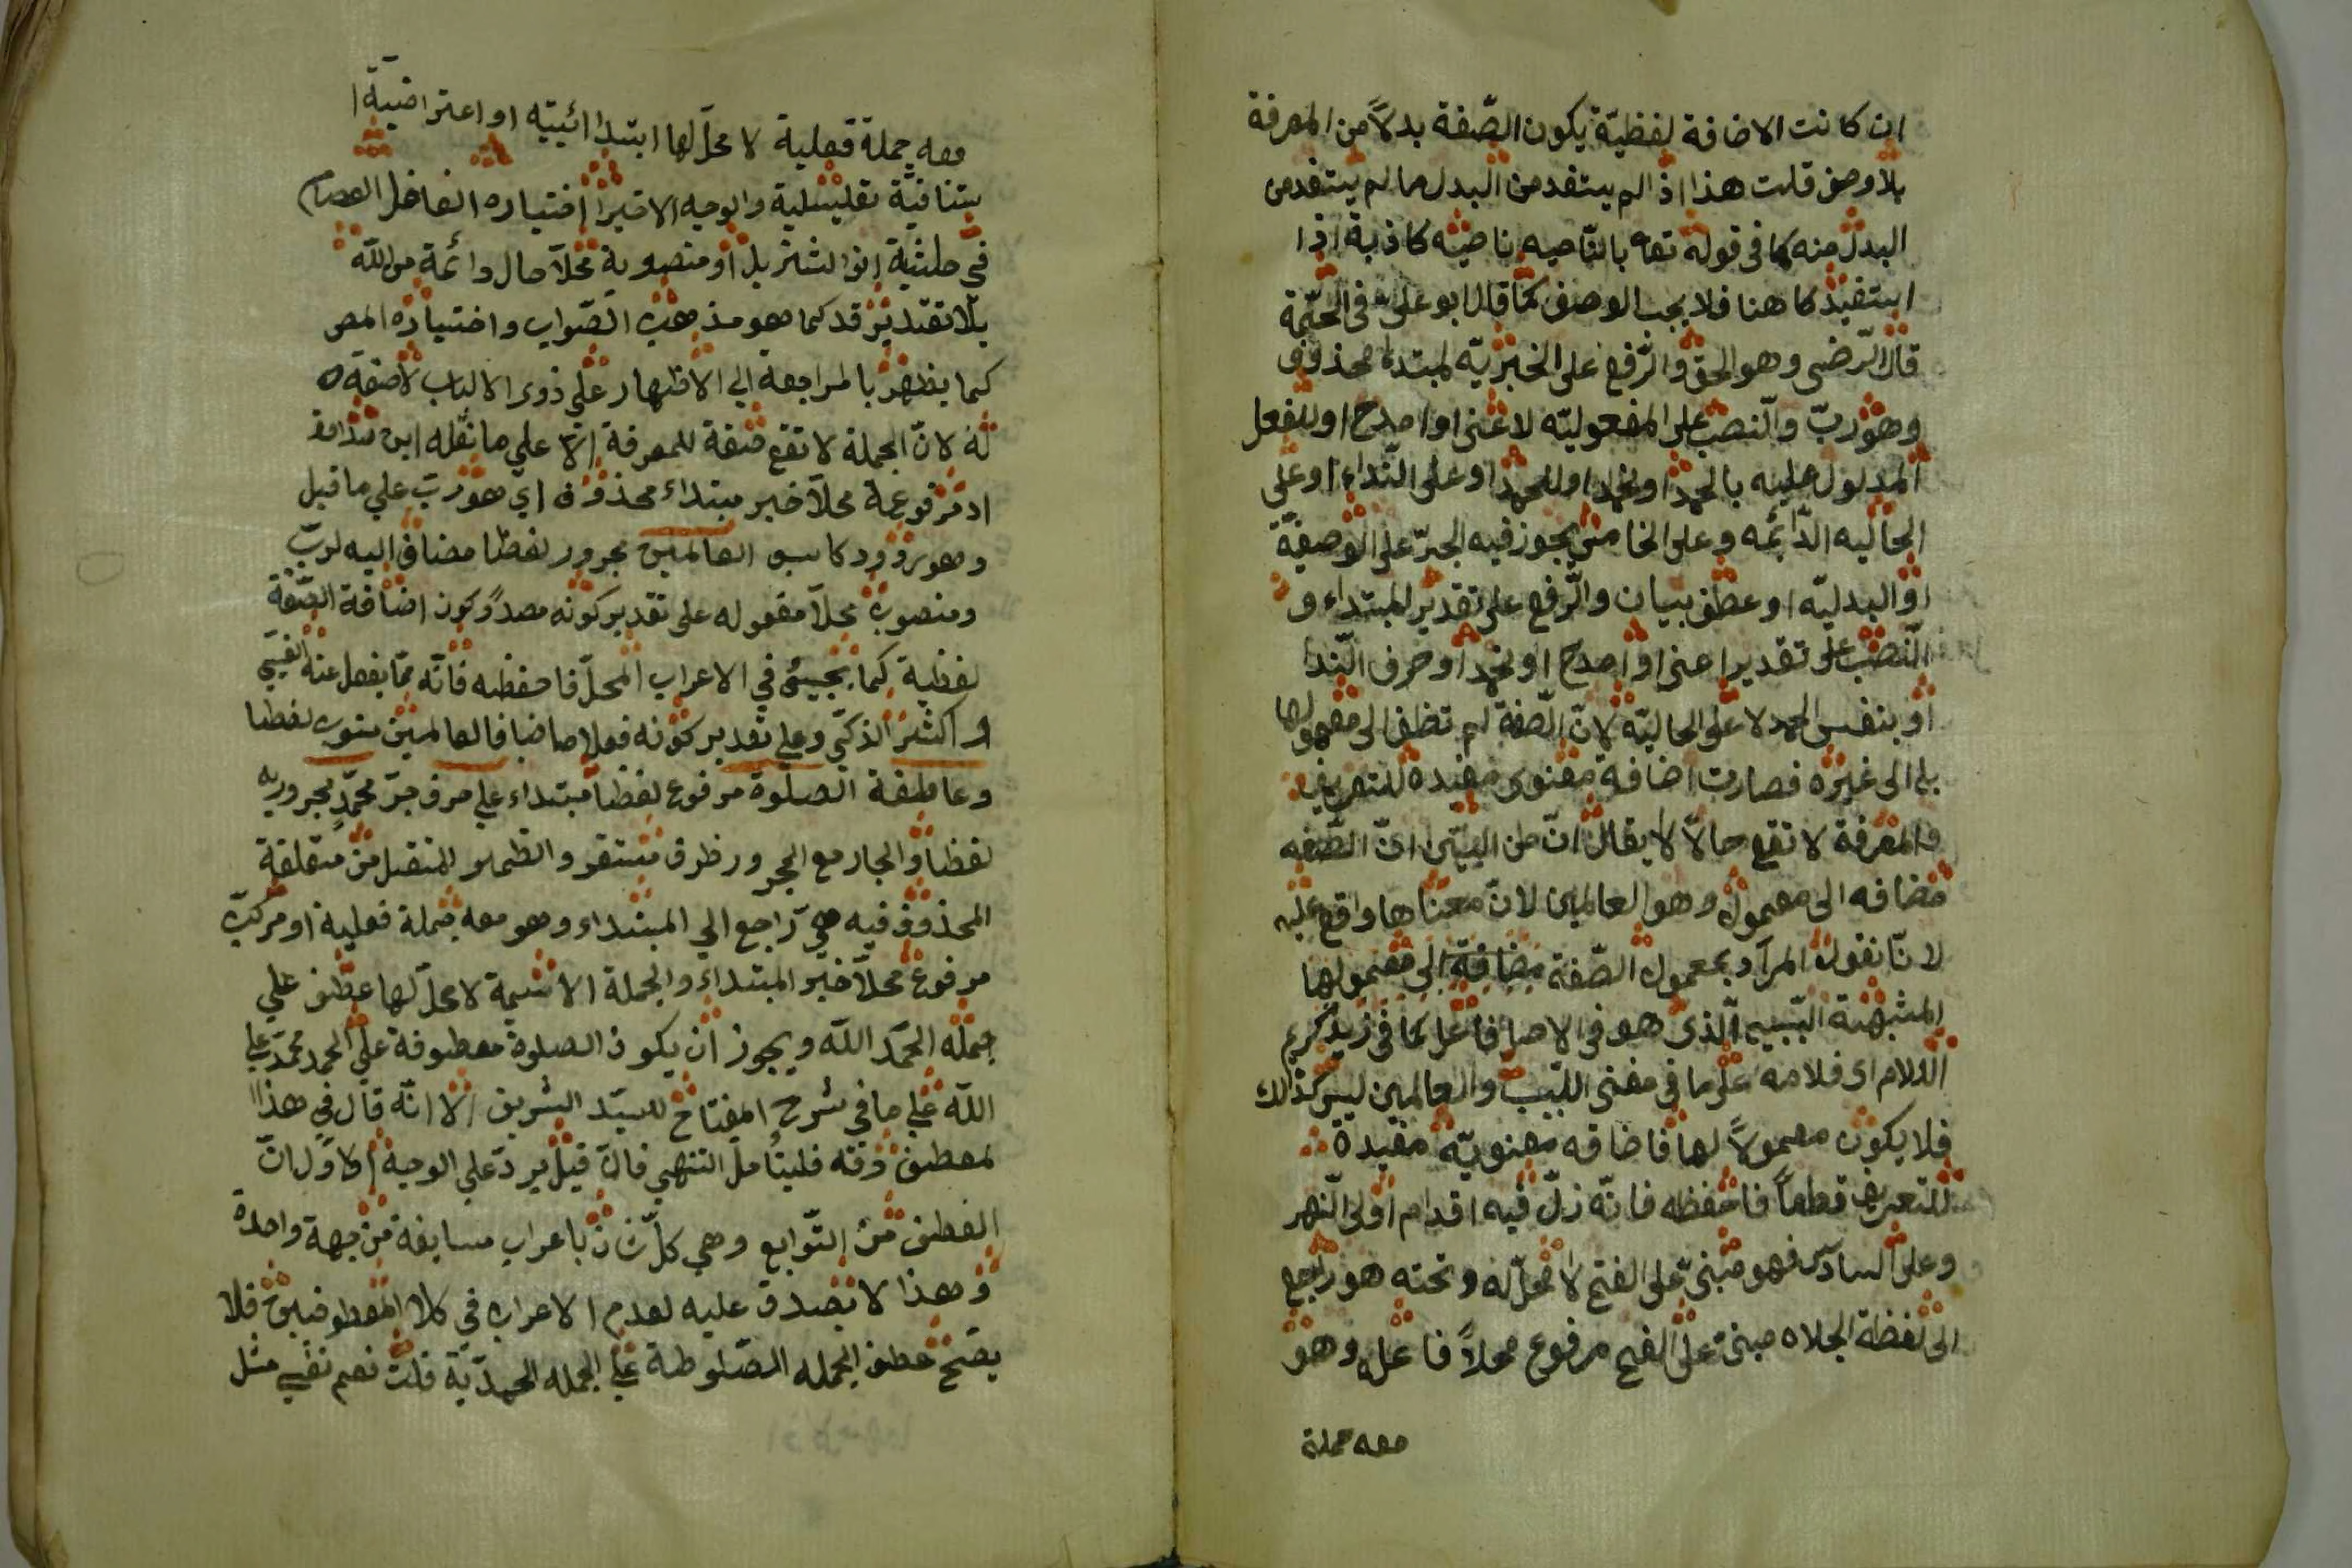 ان كانت الاضافة لفظيّة يكون الصّفة بدلاً من المعرفة
بلا وصف قلت هذا اذا لم يستفد من البدل ما لم يستفد من
البدل منه كما فى قوله تعا بالنّاصيه ناصيه كاذبة اذا
استفيد كما هنا فلا يجب الوصف كما قال ابو على فى الحجّة
قال الرّضى وهو الحق والرّفع على الخبريّه لمبتداء محذوف
وهو ربّ والنّصب على المفعوليّه لاعنى او امدح او للفعل
المدلول عليه بالحمد او نحمد او للحمد او على النّداء او على
الحاليه الدّائمه وعلى الخامس يجوز فيه الجرّ على الوصفيّة
او البدليّه او عطف بيان والرّفع على تقدير المبتداء و
النّصب على تقدير اعنى او امدح او نحمد او حرف النّدا
او بنفس الحمد لا على الحاليّه لانّ الصّفة لم تضف الى معمولها
بل الى غيره فصارت اضافة معنوى مفيده للتعريف
والمعرفة لا تقع حالاً لا يقال انّ من البيّن انّ الصّفه
مضافه الى معمول وهو العالمين لانّ معناها واقع عليه
لانّا نقول المراد بمعمول الصّفة مضافة الى معمولها
المشبهة السّبب الّذى هو فى الاصل فاعل كما فى زيد كريم
الغلام اى غلامه على ما فى مغنى اللبيب والعالمين ليس كذالك
فلا يكون معمولاً لها فاضافه معنويّه مفيدة
للتعريف قطعاً فاحفظه فانّه زلّ فيه اقدام اولى النّهر
وعلى السادس فهو مبنىّ على الفتح لا محلّ له وتحته هو راجع
الى لفظة الجلاله مبنى على الفتح مرفوع محلاً فاعله وهو
معه جملة
معه جملة فعلية لا محلّ لها ابتدائيته او اعتراضيّة ا
ستنافيّة تعليلية والوجه الاخير اختياره الفاضل العصام
في حاشية انوار التنزيل او منصوبة محلاً حال دائمة من اللّه
بلا تقدير قد كما هو مذهب الصّواب واختياره المص
كما يظهر بالمراجعة الي الاظهار علي ذوي الالباب لا صفة
له لانّ الجملة لا تقع صفة للمعرفة الا علي ما نقله ابن
او مرفوعة محلاً خبر مبتداء محذوف اي هو ربّ علي ما قيل
وهو مردود كاسبق العالمين مجرور لفظا مضاف اليه لربّ
ومنصوب محلاً مفعوله على تقدير كونه مصدراً وكون اضافة الصّفة
لفظية كما يجيئ في الاعراب المحلّ فاحفظه فانّه ممّا يغفل عنه الغبي
و اكثر الذكي وعلي تقدير كونه فعلا ماضيا فالعالمين منصوب لفظا
وعاطفة الصلوة مرفوع لفظاً مبتداء علي حرف جرّ محمّد مجرور به
لفظا والجار مع المجرور ظرف مستقر والضمير المنتقل من متعلقة
المحذوف فيه هي راجع الي المبتداء وهو معه جملة فعلية او مركبّ
مرفوع محلاً خبر المبتداء والجملة الاسمية لا محلّ لها عطف علي
جملة الحمد اللّه ويجوز ان يكون الصلوة معطوفة علي الحمد محمّد علي
اللّه علي ما في شرح المفتاح للسيّد الشريف الا انّه قال في هذا
لعطف دقة فليتأمل انتهي فانّ قيل يردّ علي الوجه الاوّل انّ
العطف من التّوابع وهي كلّ ثان باعراب سابقه من جهة واحدة
وهذا لا يصدق عليه لعدم الاعراب في كلا المعطوفين فلا
يصح عطف الجمله الصّلوطية علي الجمله الحمديّة قلت نعم نفي مثل